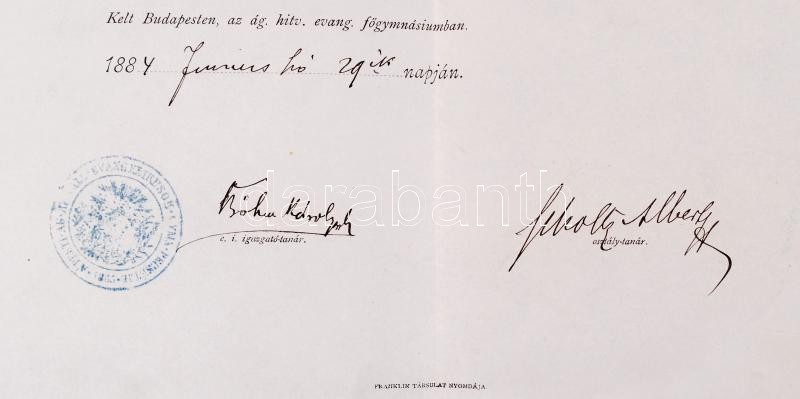 Kelt Budapesten, az ág. hitv. evang. főgymnásiumban.
1884 Junius hó 29ik napján.
darabanth
Böhm Károly
e. i. igazgató-tanár.
Scholtz Albert
osztály-tanár.
FRANKLIN TÁRSULAT NYOMDÁJA.